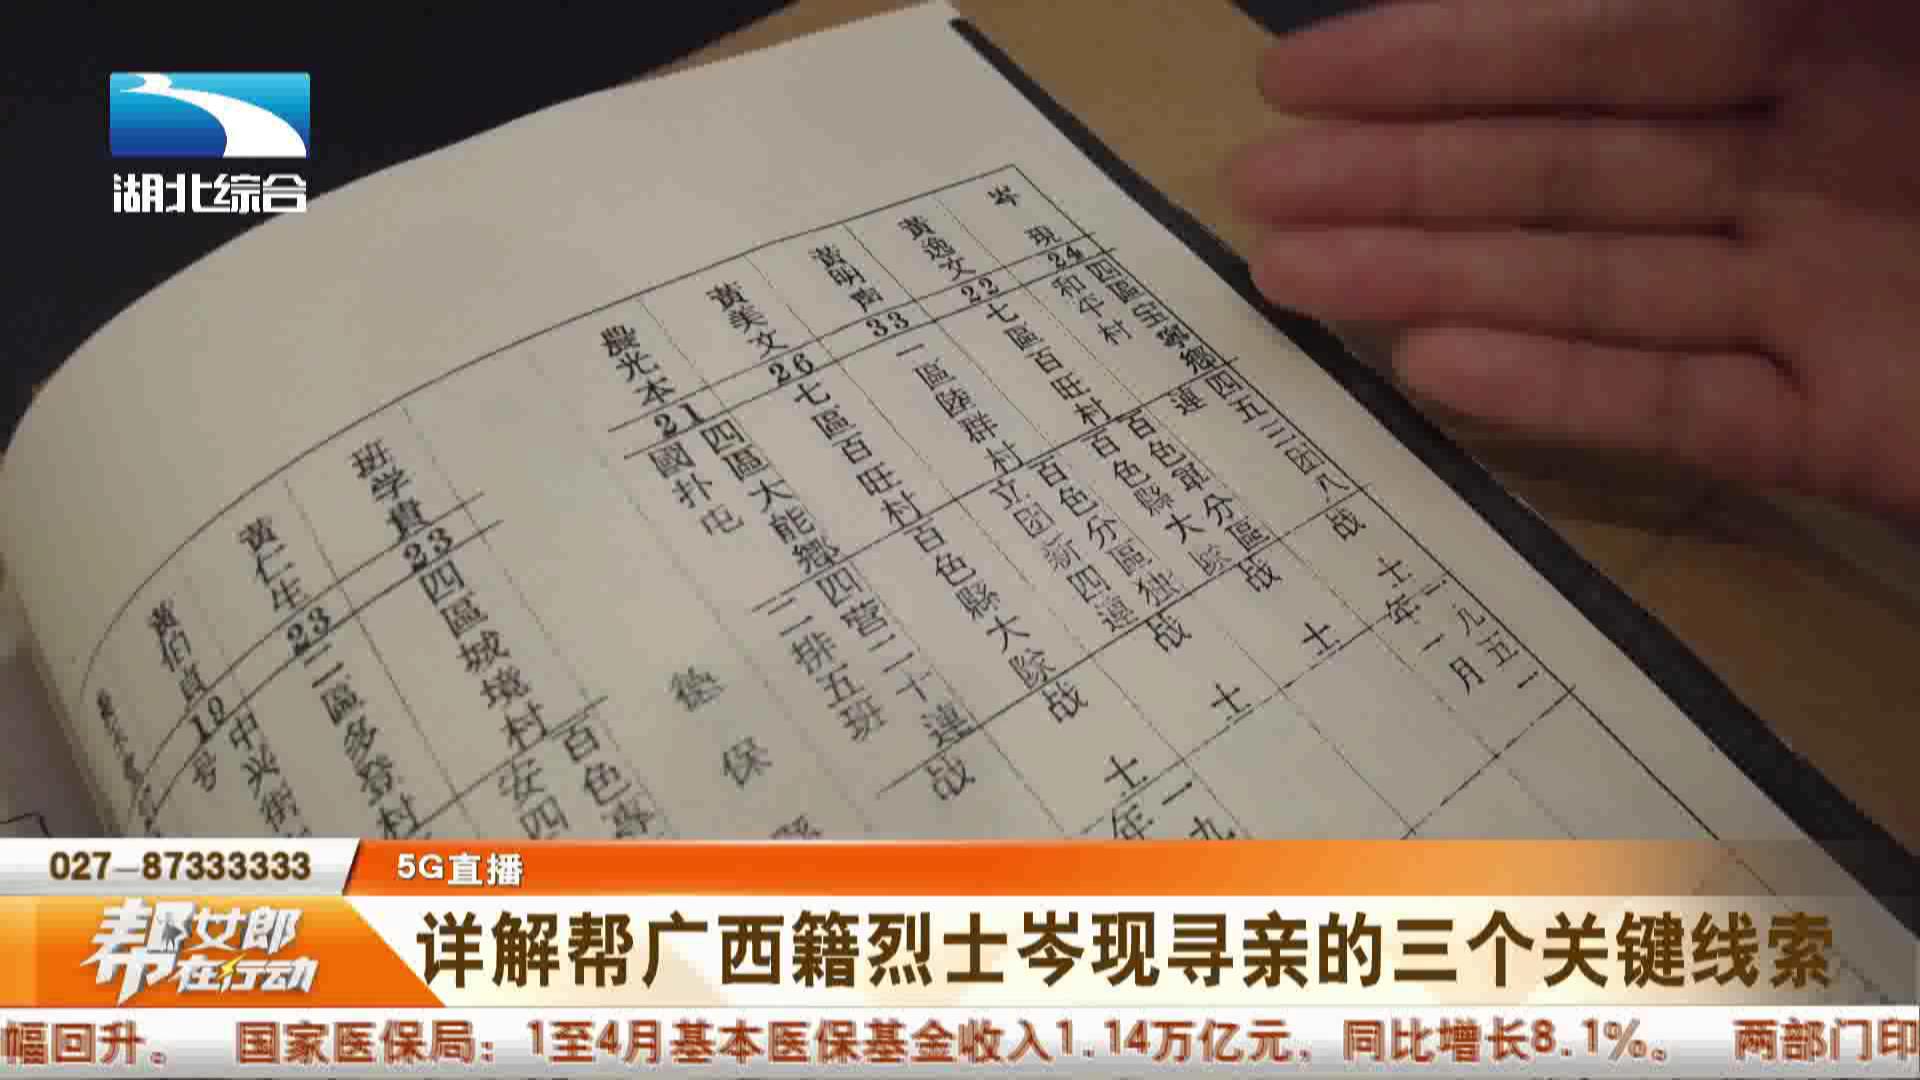 湖北综合
岑現
24
四區宝寧鄉
和平村
四五三团八
連
战士
一九五一
年一月
黃逸文
22
七區百旺村
百色軍分區
百色縣大隊
战士
黃明声
33
一區陸群村
百色分區独
立团新四連
战士
黃美文
26
七區百旺村
百色縣大隊
战士
一九
年
農光本
21
四區大能鄉
國扑屯
四营二十連
二排五班
战
德保縣
班学貴
23
四區城境村
百色
安四
黃仁生
23
二區多登村
黃伯貞
19
中兴街
号
027-87333333
5G直播
帮女郎在行动
详解帮广西籍烈士岑现寻亲的三个关键线索
幅回升。 国家医保局：1至4月基本医保基金收入1.14万亿元，同比增长8.1%。 两部门印